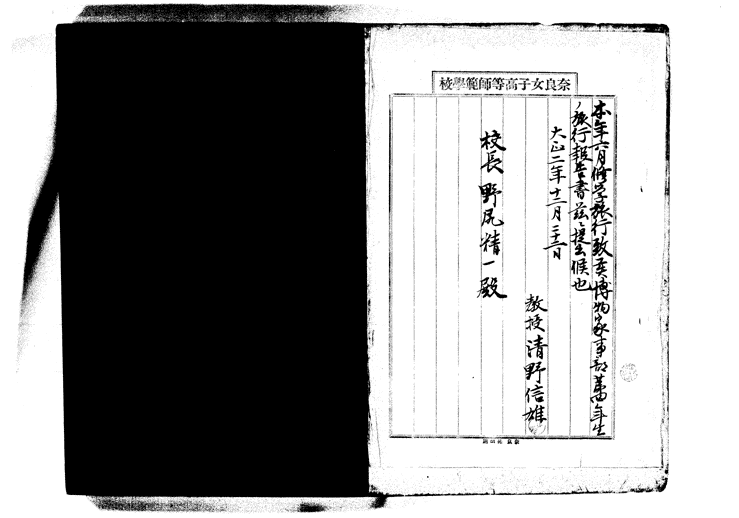 奈良女子高等師範學校
本年六月修学旅行致候博物家事部第四年生
ノ旅行報告書茲ニ提出候也
大正二年十二月二十二日
教授 清野信雄
校長 野尻精一殿